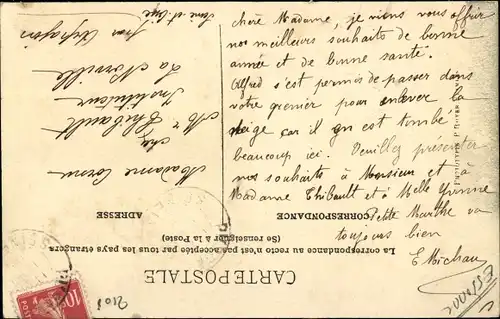 chère Madame, je viens vous offrir
nos meilleurs souhaits de bonne
année et de bonne santé.
Alfred s'est permis de passer dans
votre grenier pour enlever la
neige car il en est tombé
beaucoup ici. Veuillez presenter
nos souhaits à Monsieur et à
Madame Thibault et à Melle Yvonne
Petite Marthe va
toujours bien
E Michau
CARTE POSTALE
La correspondance au recto n'est pas acceptée par tous les pays étrangers
(Se renseigner à la Poste)
CORRESPONDANCE
ADRESSE
Madame
chez
Mr Thibault
Instituteur
La Norville
par Arpajon
Seine et Oise
10
POSTES
2108